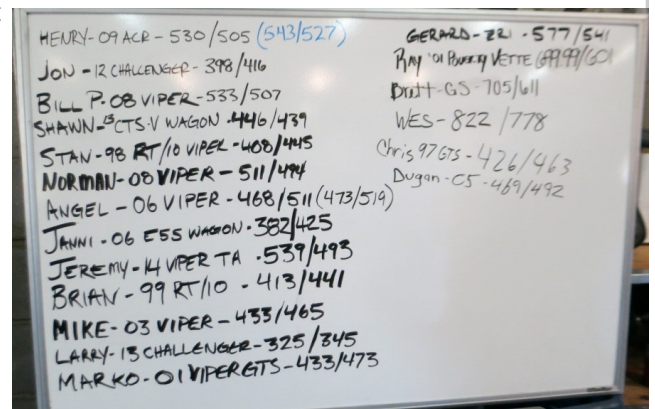 HENRY-09 ACR - 530/505 (543/527)
JON - 12 CHALLENGER - 398/416
BILL P. 08 VIPER - 533/507
SHAWN-13 CTS-V WAGON - 446/439
STAN - 98 RT/10 VIPER - 408/445
NORMAN - 08 VIPER - 511/494
ANGEL - 06 VIPER - 468/511 (473/519)
JANNI - 06 E55 WAGON - 382/425
JEREMY - 14 VIPER TA - 539/493
BRIAN - 99 RT/10 - 413/441
MIKE - 03 VIPER - 433/465
LARRY- 13 CHALLENGER - 325/345
MARKO - 01 VIPER GTS - 433/473
GERARD - ZR1 - 577/541
RAY '01 VETTE 
GS - 705/611
WES - 822/778
Chris 97 GTS - 426/463
Dugan - C5 - 469/492